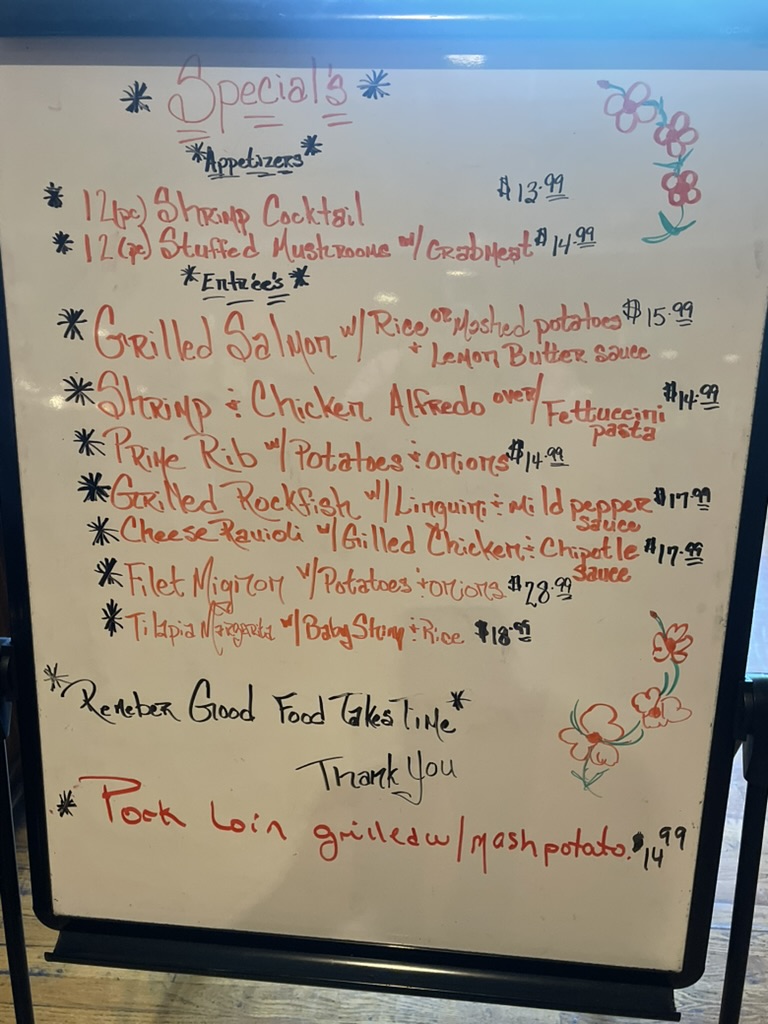 * Special's *
*Appetizers*
* 12(pc) Shrimp Cocktail $13.99
* 12(pc) Stuffed Mushrooms w/ Crabmeat $14.99
*Entrée's*
* Grilled Salmon w/ Rice or Mashed potatoes $15.99
+ Lemon Butter sauce
* Shrimp & Chicken Alfredo over/ Fettuccini $14.99
pasta
* Prime Rib w/ Potatoes & onions $14.99
* Grilled Rockfish w/ Linguini & Mild pepper $17.99
sauce
* Cheese Ravioli w/ Gilled Chicken & Chipotle $17.99
sauce
* Filet Miginon w/ Potatoes + onions $28.99
* Tilapia Margarita w/ Baby Shrimp & Rice $18.99
*Remeber Good Food Takes Time*
Thank You
* Pork Loin grilled w/ mash potato. $14.99